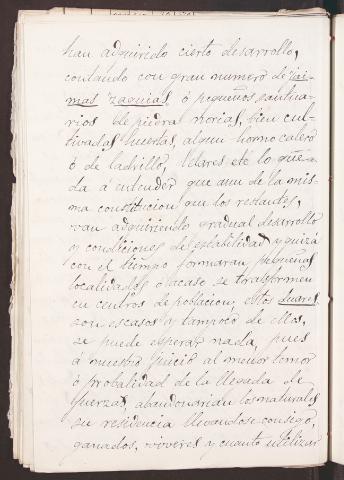 han adquirido cierto desarrollo,
contando con gran numero de Jai-
mas Zaquias ó pequeños santua-
rios de piedra, norias, bien cul-
tivadas huertas, algun horno calero
ó de ladrillo, telares etc lo que
da á entender que aun de la mis-
ma constitucion que los restantes,
van adquiriendo gradual desarrollo
y condiciones de estabilidad y quizá
con el tiempo formaran pequeñas
localidades ó acaso se trasformen
en centros de poblacion, estos duares
son escasos y tampoco de ellos,
se puede esperar nada, pues
á nuestro juicio al menor temor
ó probalidad de la llegada de
fuerzas, abandonarian los naturales
su residencia llevandose consigo,
ganados, viveres y cuanto utilizar